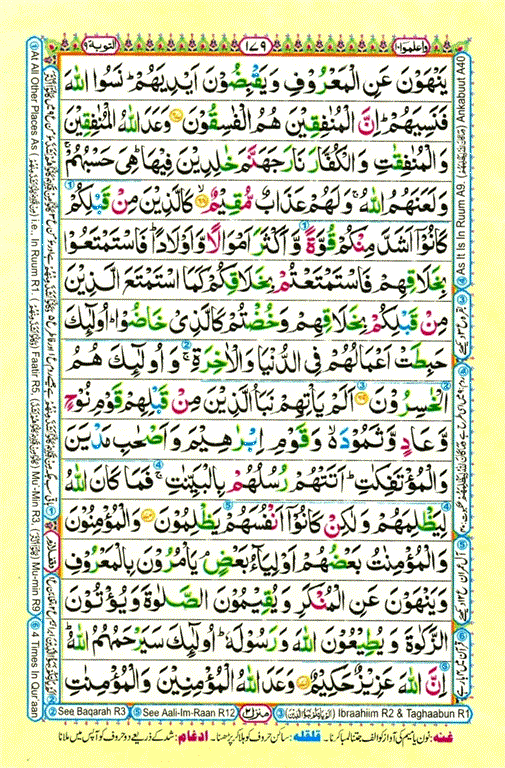 واعلموا ١٠
١٧٩
التوبة ٩
يَنْهَوْنَ عَنِ الْمَعْرُوْفِ وَيَقْبِضُوْنَ اَيْدِيَهُمْ ؕ نَسُوا اللّٰهَ
فَنَسِيَهُمْ ؕ اِنَّ الْمُنٰفِقِيْنَ هُمُ الْفٰسِقُوْنَ ﴿۶۷﴾ وَعَدَ اللّٰهُ الْمُنٰفِقِيْنَ
وَالْمُنٰفِقٰتِ وَالْكُفَّارَ نَارَ جَهَنَّمَ خٰلِدِيْنَ فِيْهَا ؕ هِيَ حَسْبُهُمْ ۚ
وَلَعَنَهُمُ اللّٰهُ ۚ وَلَهُمْ عَذَابٌ مُّقِيْمٌ ﴿۶۸﴾ كَالَّذِيْنَ مِنْ قَبْلِكُمْ
كَانُوْۤا اَشَدَّ مِنْكُمْ قُوَّةً وَّاَكْثَرَ اَمْوَالًا وَّاَوْلَادًا ؕ فَاسْتَمْتَعُوْا
بِخَلَاقِهِمْ فَاسْتَمْتَعْتُمْ بِخَلَاقِكُمْ كَمَا اسْتَمْتَعَ الَّذِيْنَ
مِنْ قَبْلِكُمْ بِخَلَاقِهِمْ وَخُضْتُمْ كَالَّذِيْ خَاضُوْا ؕ اُولٰٓئِكَ
حَبِطَتْ اَعْمَالُهُمْ فِي الدُّنْيَا وَالْاٰخِرَةِ ۚ وَاُولٰٓئِكَ هُمُ
الْخٰسِرُوْنَ ﴿۶۹﴾ اَلَمْ يَاْتِهِمْ نَبَاُ الَّذِيْنَ مِنْ قَبْلِهِمْ قَوْمِ نُوْحٍ
وَّعَادٍ وَّثَمُوْدَ ۙ۬ وَقَوْمِ اِبْرٰهِيْمَ وَاَصْحٰبِ مَدْيَنَ
وَالْمُؤْتَفِكٰتِ ؕ اَتَتْهُمْ رُسُلُهُمْ بِالْبَيِّنٰتِ ۚ فَمَا كَانَ اللّٰهُ
لِيَظْلِمَهُمْ وَلٰكِنْ كَانُوْۤا اَنْفُسَهُمْ يَظْلِمُوْنَ ﴿۷۰﴾ وَالْمُؤْمِنُوْنَ
وَالْمُؤْمِنٰتُ بَعْضُهُمْ اَوْلِيَآءُ بَعْضٍ ۘ يَاْمُرُوْنَ بِالْمَعْرُوْفِ
وَيَنْهَوْنَ عَنِ الْمُنْكَرِ وَيُقِيْمُوْنَ الصَّلٰوةَ وَيُؤْتُوْنَ
الزَّكٰوةَ وَيُطِيْعُوْنَ اللّٰهَ وَرَسُوْلَهٗ ؕ اُولٰٓئِكَ سَيَرْحَمُهُمُ اللّٰهُ ؕ
اِنَّ اللّٰهَ عَزِيْزٌ حَكِيْمٌ ﴿۷۱﴾ وَعَدَ اللّٰهُ الْمُؤْمِنِيْنَ وَالْمُؤْمِنٰتِ
② See Baqarah R3 ⑤ See Aali-Im-Raan R12 منزل ٢ ③ Ibraahiim R2 & Taghaabun R1
غنه: نون یا میم کی آواز کو الف جتنا لمبا کرنا۔ قلقله: ساکن حروف کو ہلا کر پڑھنا۔ ادغام: شد کے ذریعے دو حروف کو آپس میں ملانا
① At All Other Places As i.e., In Ruum R1. Faatir R5, Mu-Min R3, Mu-min R9 ⑥ 4 Times In Qur'aan
④ As It Is In Ruum A9, Ankabuut A40